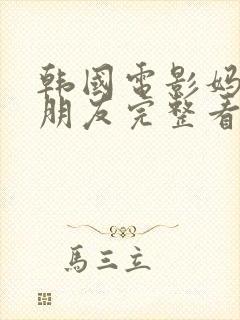 韩國電影妈
朋友完整看
馬三立